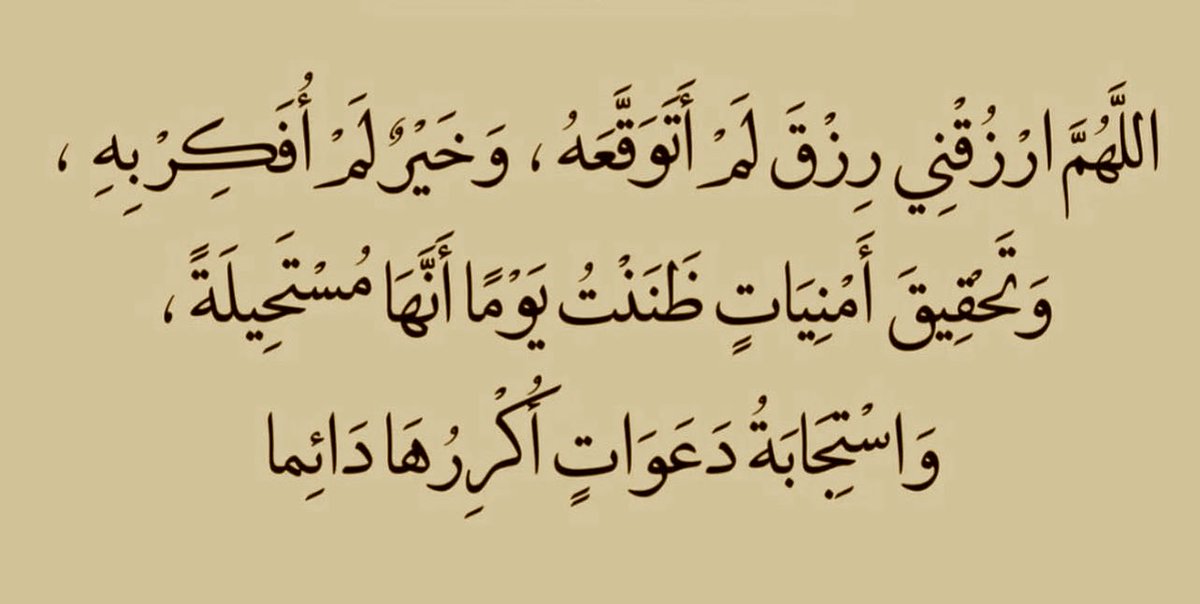 اللَّهُمَّ ارْزُقْنِي رِزْقَ لَمْ أَتَوَقَّعَهُ ، وَخَيْرٌ لَمْ أُفَكِرْ بِهِ ،
وَتَحْقِيقَ أَمْنِيَاتٍ ظَنَنْتُ يَوْمًا أَنَّهَا مُسْتَحِيلَةً ،
وَاسْتِجَابَةُ دَعَوَاتٍ أُكْرِرُهَا دَائِما